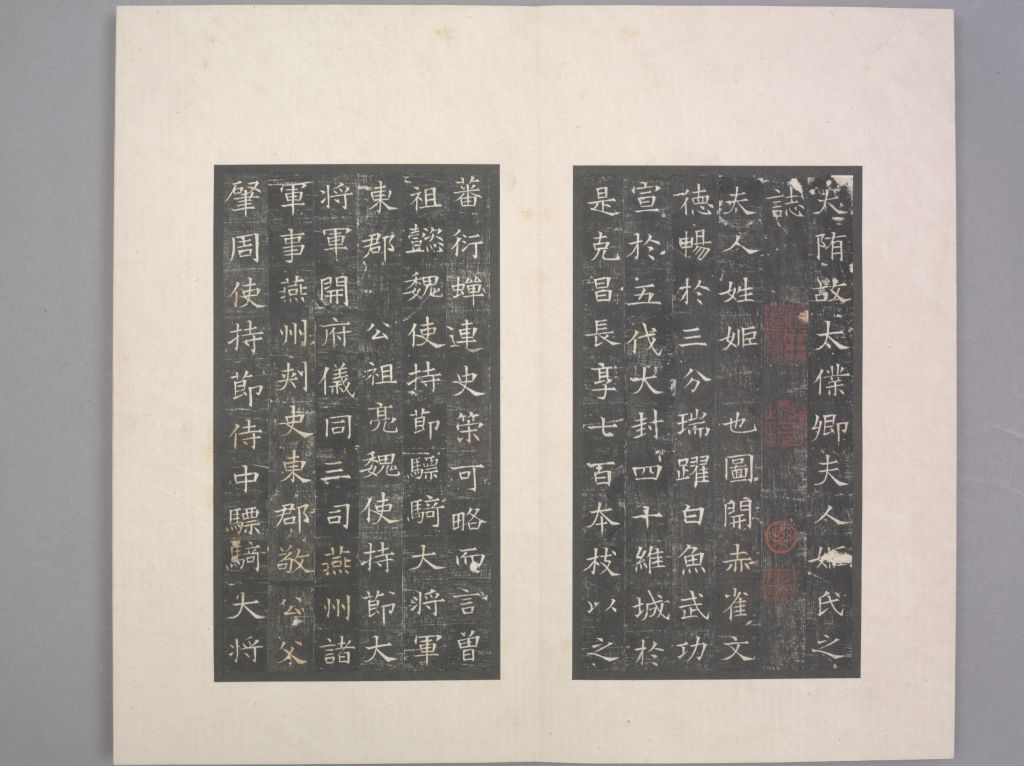 大隋故太僕卿夫人姬氏之
誌
夫人姓姬也圖開赤雀文
德暢於三分瑞躍白魚武功
宣於五伐大封四十維城於
是克昌長享七百本枝以之
蕃衍蟬連史筞可略而言曾
祖懿魏使持節驃騎大將軍
東郡公祖亮魏使持節大
將軍開府儀同三司燕州諸
軍事燕州刾史東郡敬公父
肈周使持節侍中驃騎大將